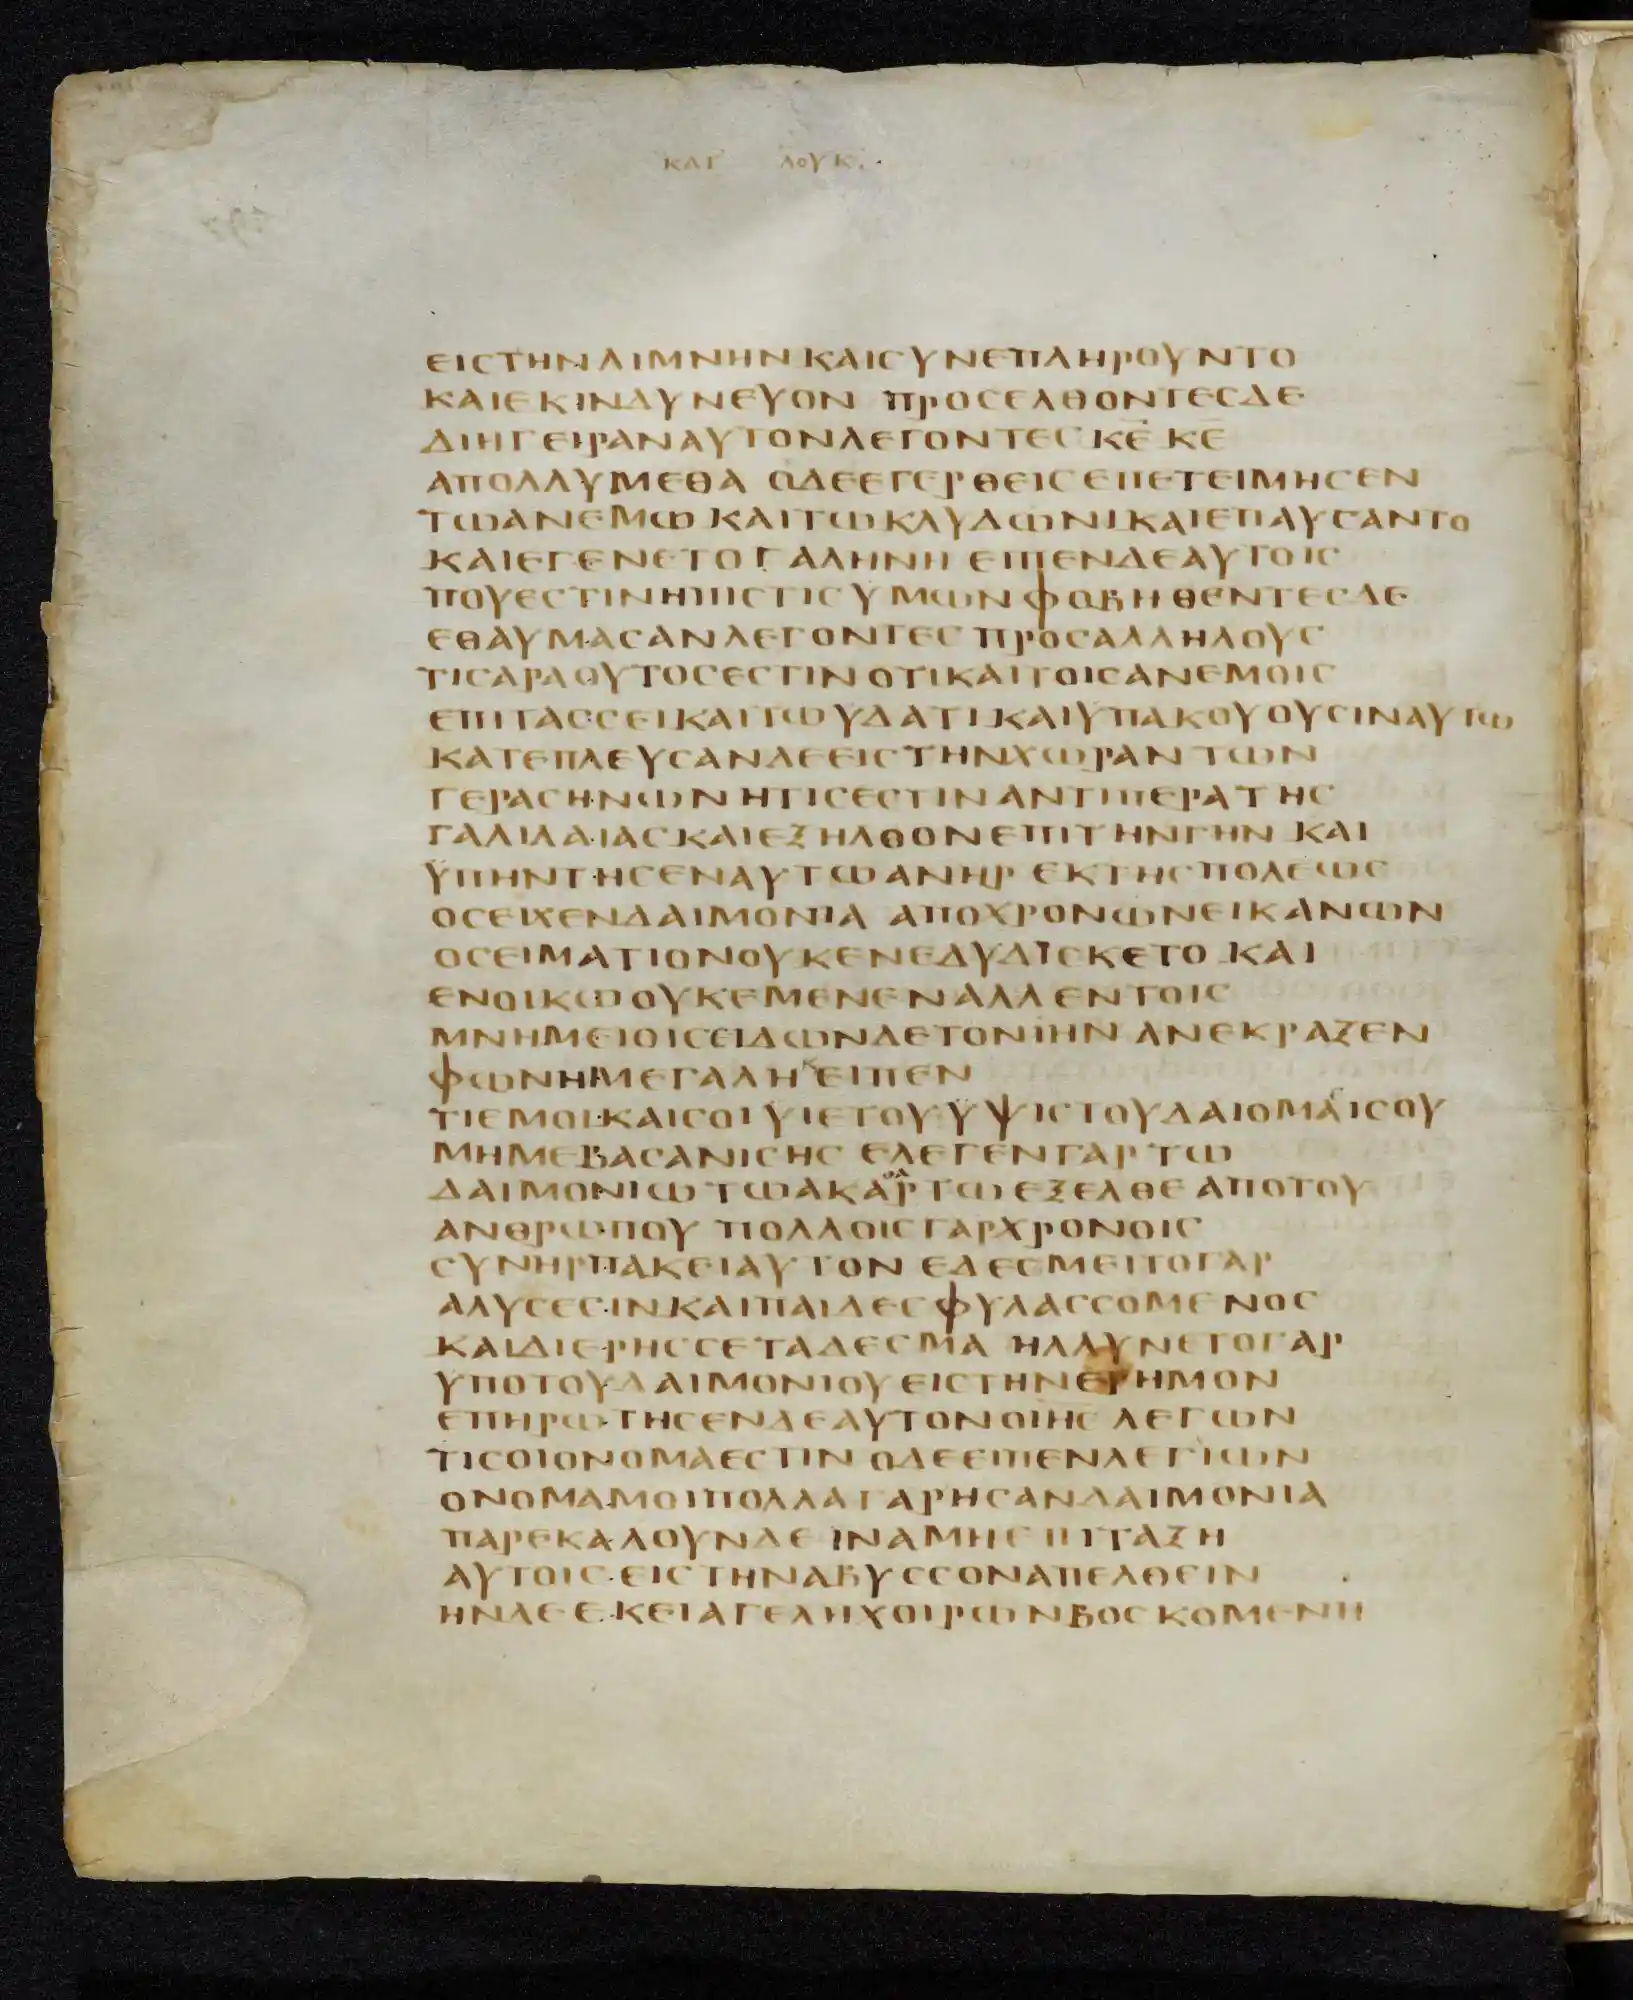 ΚΑΤ ΛΟΥΚ.
ΕΙΣΤΗΝΛΙΜΝΗΝΚΑΙΣΥΝΕΠΛΗΡΟΥΝΤΟ
ΚΑΙΕΚΙΝΔΥΝΕΥΟΝ ΠΡΟΣΕΛΘΟΝΤΕΣΔΕ
ΔΙΗΓΕΙΡΑΝΑΥΤΟΝΛΕΓΟΝΤΕΣ ΚΕ ΚΕ
ΑΠΟΛΛΥΜΕΘΑ ΟΔΕΕΓΕΡΘΕΙΣΕΠΕΤΕΙΜΗΣΕΝ
ΤΩΑΝΕΜΩ ΚΑΙΤΩΚΛΥΔΩΝΙΚΑΙΕΠΑΥΣΑΝΤΟ
ΚΑΙΕΓΕΝΕΤΟΓΑΛΗΝΗ ΕΙΠΕΝΔΕΑΥΤΟΙΣ
ΠΟΥΕΣΤΙΝΗΠΙΣΤΙΣΥΜΩΝ ΦΟΒΗΘΕΝΤΕΣΔΕ
ΕΘΑΥΜΑΣΑΝΛΕΓΟΝΤΕΣ ΠΡΟΣΑΛΛΗΛΟΥΣ
ΤΙΣΑΡΑΟΥΤΟΣΕΣΤΙΝ ΟΤΙΚΑΙΤΟΙΣΑΝΕΜΟΙΣ
ΕΠΙΤΑΣΣΕΙΚΑΙΤΩΥΔΑΤΙΚΑΙΥΠΑΚΟΥΟΥΣΙΝΑΥΤΩ
ΚΑΤΕΠΛΕΥΣΑΝΔΕΕΙΣΤΗΝΧΩΡΑΝ ΤΩΝ
ΓΕΡΑΣΗΝΩΝ ΗΤΙΣΕΣΤΙΝΑΝΤΙΠΕΡΑΤΗΣ
ΓΑΛΙΛΑΙΑΣΚΑΙΕΞΗΛΘΟΝΕΠΙΤΗΝΓΗΝ ΚΑΙ
ΥΠΗΝΤΗΣΕΝΑΥΤΩΑΝΗΡ ΕΚΤΗΣΠΟΛΕΩΣ
ΟΣΕΙΧΕΝΔΑΙΜΟΝΙΑ ΑΠΟΧΡΟΝΩΝΕΙΚΑΝΩΝ
ΟΣΕΙΜΑΤΙΟΝΟΥΚΕΝΕΔΥΔΙΣΚΕΤΟ ΚΑΙ
ΕΝΟΙΚΩΟΥΚΕΜΕΝΕΝΑΛΛ ΕΝΤΟΙΣ
ΜΝΗΜΕΙΟΙΣΕΙΔΩΝΔΕΤΟΝΙΗΝ ΑΝΕΚΡΑΖΕΝ
ΦΩΝΗΜΕΓΑΛΗΚΕΙΠΕΝ
ΤΙΕΜΟΙΚΑΙΣΟΙΥΙΕΤΟΥΥΨΙΣΤΟΥΔΑΙΟΜΑΙΣΟΥ
ΜΗΜΕΒΑΣΑΝΙΣΗΣ ΕΛΕΓΕΝΓΑΡ ΤΩ
ΔΑΙΜΟΝΙΩΤΩΑΚΑΡΤΩΕΞΕΛΘΕ ΑΠΟΤΟΥ
ΑΝΘΡΩΠΟΥ ΠΟΛΛΟΙΣΓΑΡΧΡΟΝΟΙΣ
ΣΥΝΗΡΠΑΚΕΙΑΥΤΟΝ ΕΔΕΣΜΕΙΤΟΓΑΡ
ΑΛΥΣΕΣΙΝΚΑΙΠΑΙΔΕΣΦΥΛΑΣΣΟΜΕΝΟΣ
ΚΑΙΔΙΕΡΗΣΣΕΤΑΔΕΣΜΑ ΗΛΑΥΝΕΤΟΓΑΡ
ΥΠΟΤΟΥΔΑΙΜΟΝΙΟΥΕΙΣΤΗΝΕΡΗΜΟΝ
ΕΠΗΡΩΤΗΣΕΝΔΕΑΥΤΟΝΟΙΗΣ ΛΕΓΩΝ
ΤΙΣΟΙΟΝΟΜΑΕΣΤΙΝ ΟΔΕΕΙΠΕΝΛΕΓΙΩΝ
ΟΝΟΜΑΜΟΙΠΟΛΛΑΓΑΡΗΣΑΝΔΑΙΜΟΝΙΑ
ΠΑΡΕΚΑΛΟΥΝΔΕ ΙΝΑΜΗΕΠΙΤΑΞΗ
ΑΥΤΟΙΣ ΕΙΣΤΗΝΑΒΥΣΣΟΝΑΠΕΛΘΕΙΝ
ΗΝΔΕΕΚΕΙΑΓΕΛΗΧΟΙΡΩΝΒΟΣΚΟΜΕΝΗ